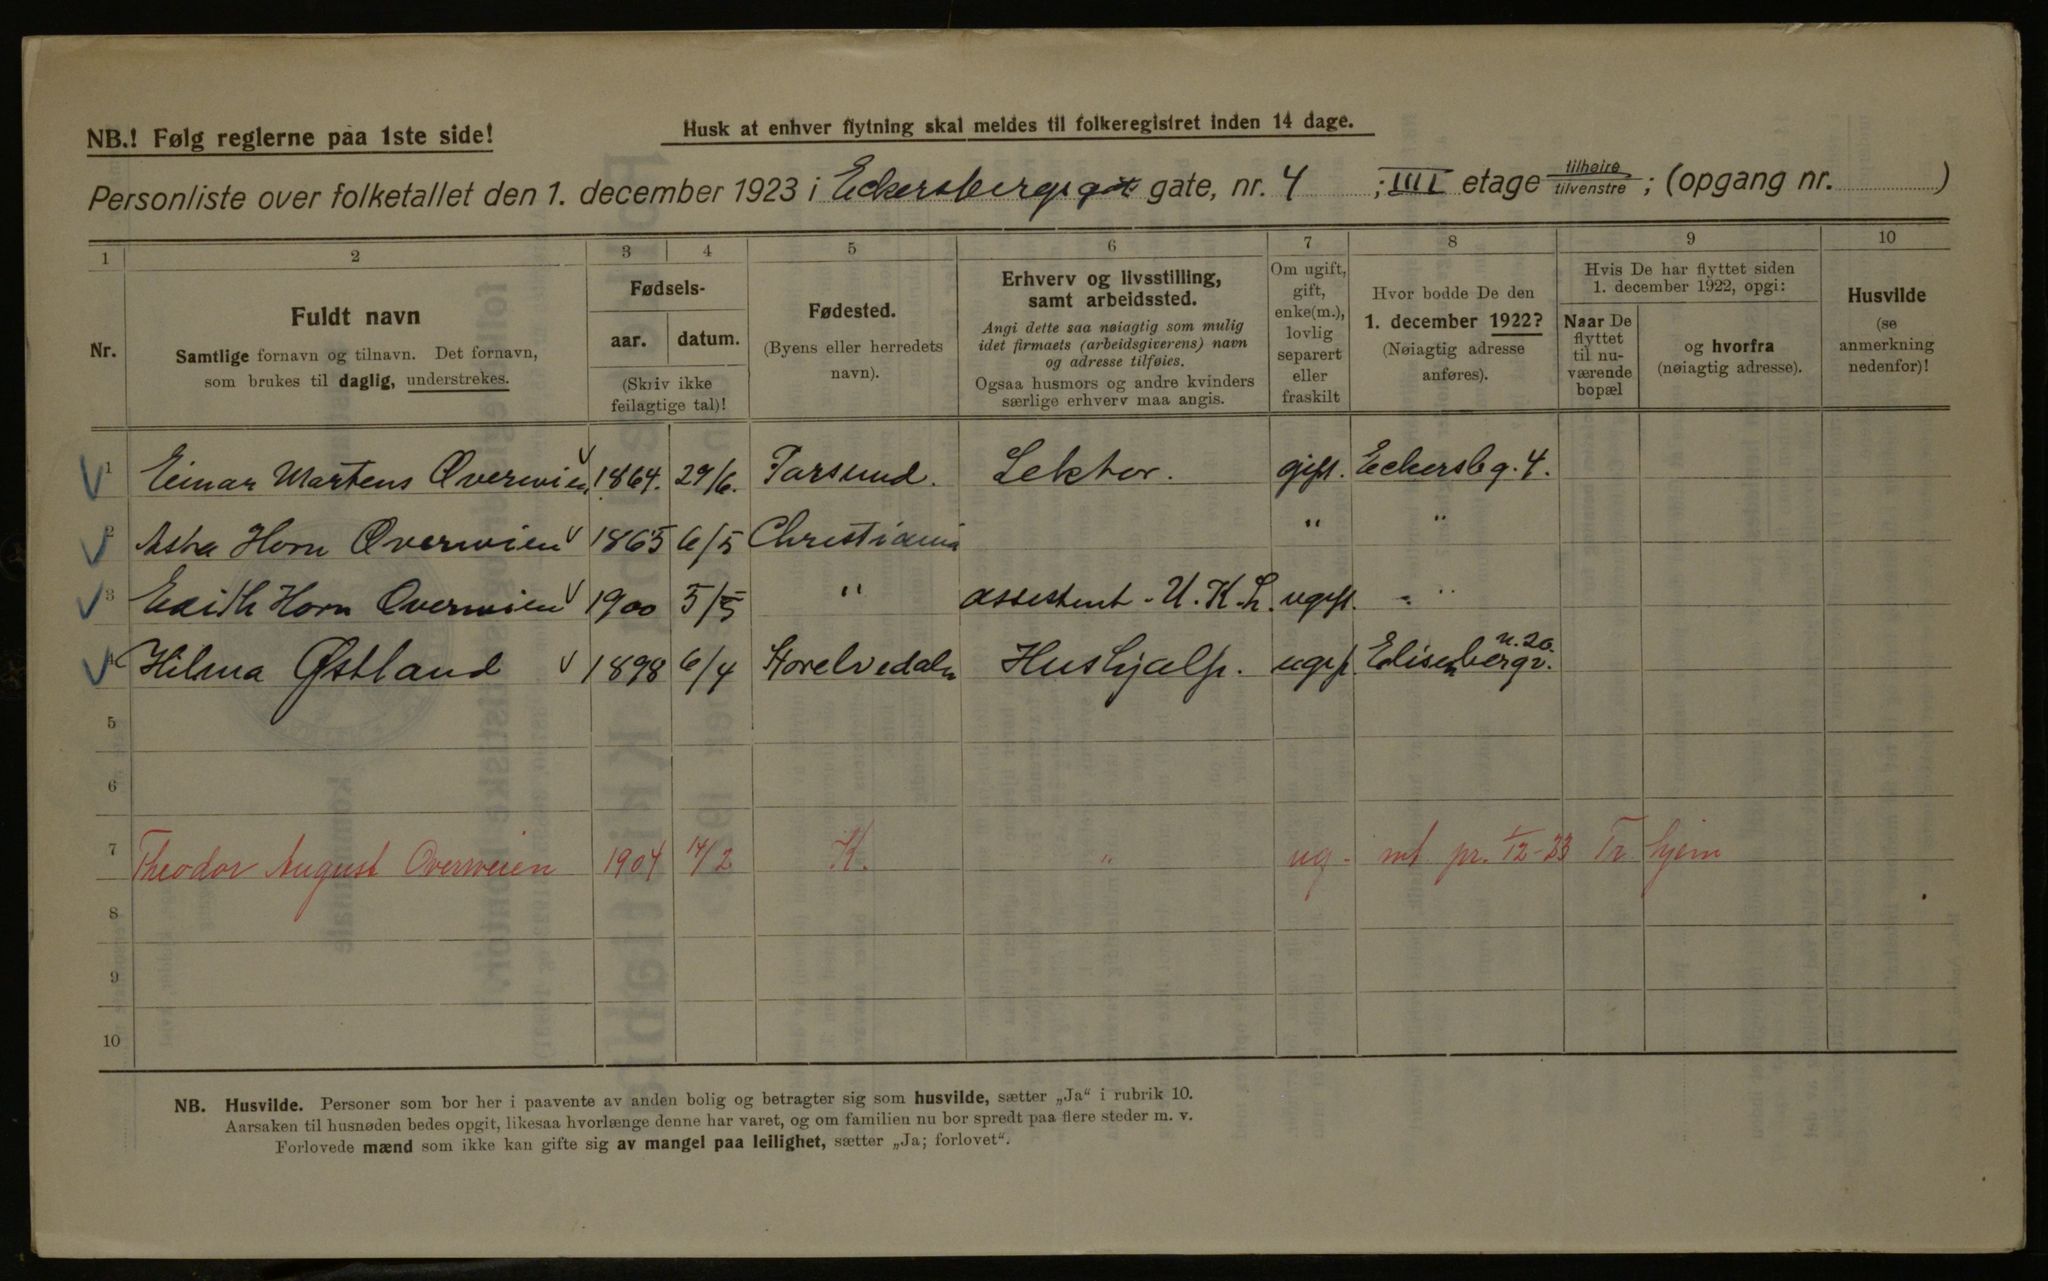 NB.! Følg reglerne paa 1ste side!
Husk at enhver flytning skal meldes til folkeregistret inden 14 dage.
Personliste over folketallet den 1. december 1923 i Eckersbergsgt gate, nr. 4 ; IIII etage tilhøire tilvenstre ; (opgang nr. )
1 2 3 4 5 6 7 8 9 10
Nr.
Fuldt navn
Samtlige fornavn og tilnavn. Det fornavn,
som brukes til daglig, understrekes.
Fødsels-
aar. datum.
(Skriv ikke
feilagtige tal)!
Fødested.
(Byens eller herredets
navn).
Erhverv og livsstilling,
samt arbeidssted.
Angi dette saa nøiagtig som mulig
idet firmaets (arbeidsgiverens) navn
og adresse tilføies.
Ogsaa husmors og andre kvinders
særlige erhverv maa angis.
Om ugift,
gift,
enke(m.),
lovlig
separert
eller
fraskilt
Hvor bodde De den
1. december 1922?
(Nøiagtig adresse
anføres).
Hvis De har flyttet siden
1. december 1922, opgi:
Naar De
flyttet
til nu-
værende
bopæl
og hvorfra
(nøiagtig adresse).
Husvilde
(se
anmerkning
nedenfor)!
1 Einar Martens Øverwien 1864. 29/6. Farsund. Lektor. gift. Eckersbg. 4.
2 Asta Horn Øverwien 1865 6/5 Christiania " "
3 Edith Horn Overwien 1900 5/5 " assistent - U. K. L. ugift. - "
4 Hilma Østland 1898 6/4 Storelvedalen Hushjælp. ugift. Elisenbergv. n. 20.
5
6
7 Theodor August Overweien 1904 14/2 K. " ug. mt pr. 1/12-23 Tr. hjem
8
9
10
NB. Husvilde. Personer som bor her i paavente av anden bolig og betragter sig som husvilde, sætter „Ja“ i rubrik 10.
Aarsaken til husnøden bedes opgit, likesaa hvorlænge denne har varet, og om familien nu bor spredt paa flere steder m. v.
Forlovede mænd som ikke kan gifte sig av mangel paa leilighet, sætter „Ja; forlovet“.